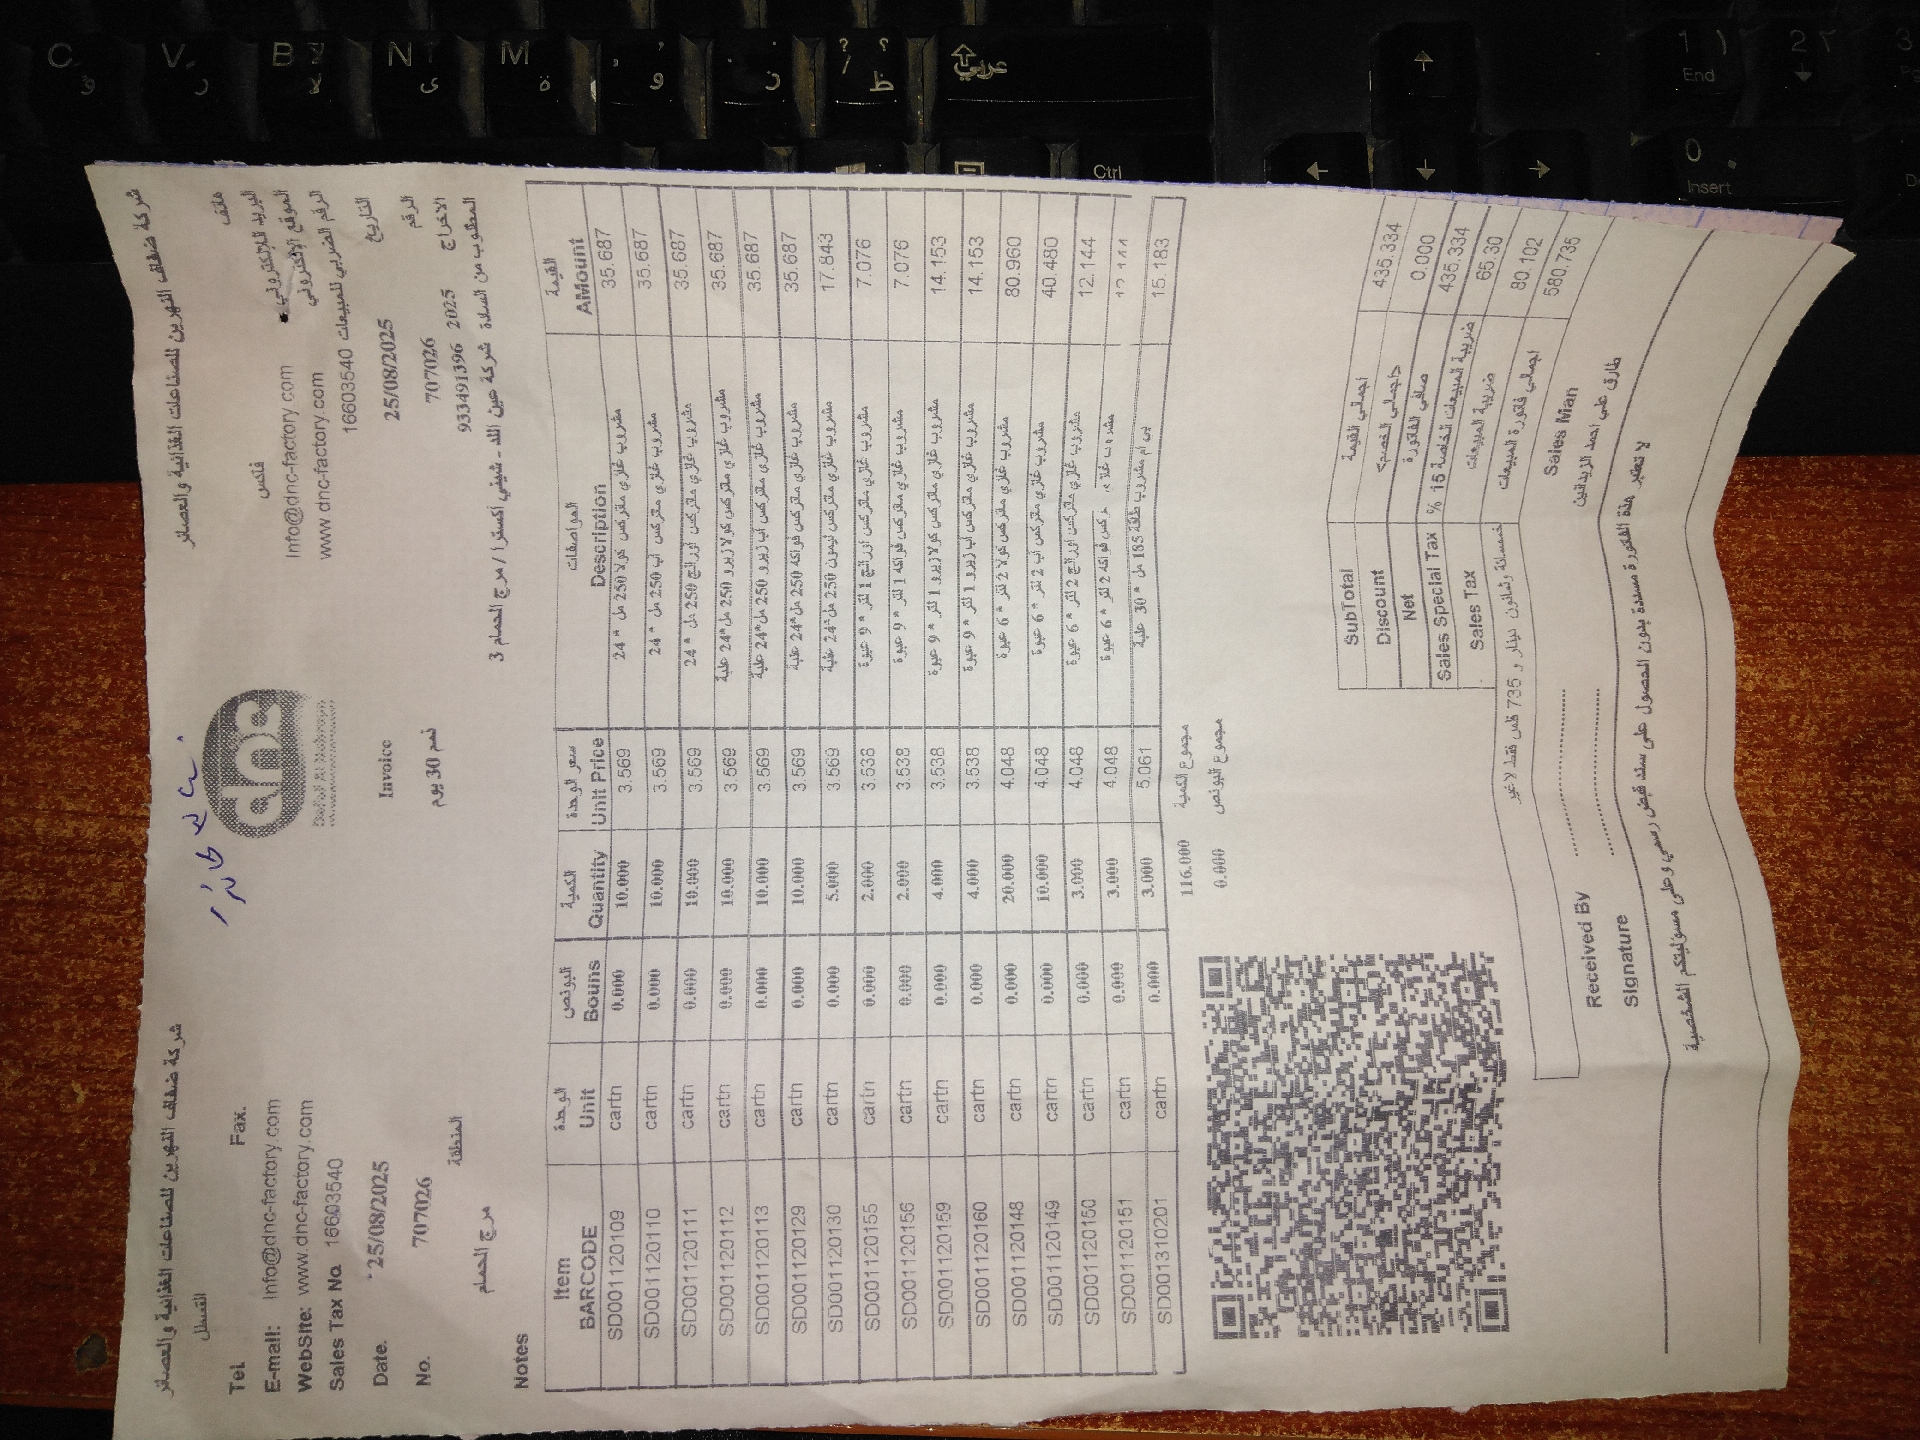 شركة ضفاف النهرين للصناعات الغذائية والعصائر
شركة ضفاف النهرين للصناعات الغذائية والعصائر
القسطل
dnc
Tel. Fax. فاكس هاتف
E-mail: Info@dnc-factory.com Info@dnc-factory.com البريد الالكتروني
WebSite: www.dnc-factory.com www.dnc-factory.com الموقع الالكتروني
Sales Tax No 16603540 16603540 الرقم الضريبي للمبيعات
Date. 25/08/2025 Invoice 25/08/2025 التاريخ
No. 707026 707026 الرقم
ذمم 30 يوم
المنطقة 933491396 2025 الاخراج
مرج الحمام
المطلوب من السادة شركة عين الله - شيني اكسترا / مرج الحمام 3
Notes
Item الوحدة البونص الكمية سعر الوحدة المواصفات القيمة
BARCODE Unit Bouns Quantity Unit Price Description AMount
SD001120109 cartn 0.000 10.000 3.569 مشروب غازي متركس كولا 250 مل * 24 35.687
SD001120110 cartn 0.000 10.000 3.569 مشروب غازي متركس اب 250 مل * 24 35.687
SD001120111 cartn 0.000 10.000 3.569 مشروب غازي متركس اورانج 250 مل * 24 35.687
SD001120112 cartn 0.000 10.000 3.569 مشروب غازي متركس كولا زيرو 250 مل*24 علبة 35.687
SD001120113 cartn 0.000 10.000 3.569 مشروب غازي متركس اب زيرو 250 مل*24 علبة 35.687
SD001120129 cartn 0.000 10.000 3.569 مشروب غازي متركس فواكه 250 مل*24 علبة 35.687
SD001120130 cartn 0.000 5.000 3.569 مشروب غازي متركس ليمون 250 مل*24 علبة 17.843
SD001120155 cartn 0.000 2.000 3.538 مشروب غازي متركس اورانج 1 لتر * 9 عبوة 7.076
SD001120156 cartn 0.000 2.000 3.538 مشروب غازي متركس فواكه 1 لتر * 9 عبوة 7.076
SD001120159 cartn 0.000 4.000 3.538 مشروب غازي متركس كولا زيرو 1 لتر * 9 عبوة 14.153
SD001120160 cartn 0.000 4.000 3.538 مشروب غازي متركس اب زيرو 1 لتر * 9 عبوة 14.153
SD001120148 cartn 0.000 20.000 4.048 مشروب غازي متركس كولا 2 لتر * 6 عبوة 80.960
SD001120149 cartn 0.000 10.000 4.048 مشروب غازي متركس اب 2 لتر * 6 عبوة 40.480
SD001120150 cartn 0.000 3.000 4.048 مشروب غازي متركس اورانج 2 لتر * 6 عبوة 12.144
SD001120151 cartn 0.000 3.000 4.048 مشروب غازي متركس فواكه 2 لتر * 6 عبوة 12.144
SD001310201 cartn 0.000 3.000 5.061 بي ام مشروب طاقة 185 مل * 30 علبة 15.183
116.000 مجموع الكمية
0.000 مجموع البونص
SubTotal اجمالي القيمة 435.334
Discount اجمالي الخصم 0.000
Net صافي الفاتورة 435.334
Sales Special Tax % 15 ضريبة المبيعات الخاصة 65.30
Sales Tax ضريبة المبيعات 80.102
خمسمائة وثمانون دينار و 735 فلس فقط لاغير اجمالي فاتورة المبيعات 580.735
Received By Sales Man
Signature طارق علي احمد الزيدانين
لا تعتبر هذه الفاتورة مسددة بدون الحصول على سند قبض رسمي وعلى مسؤليتكم الشخصية